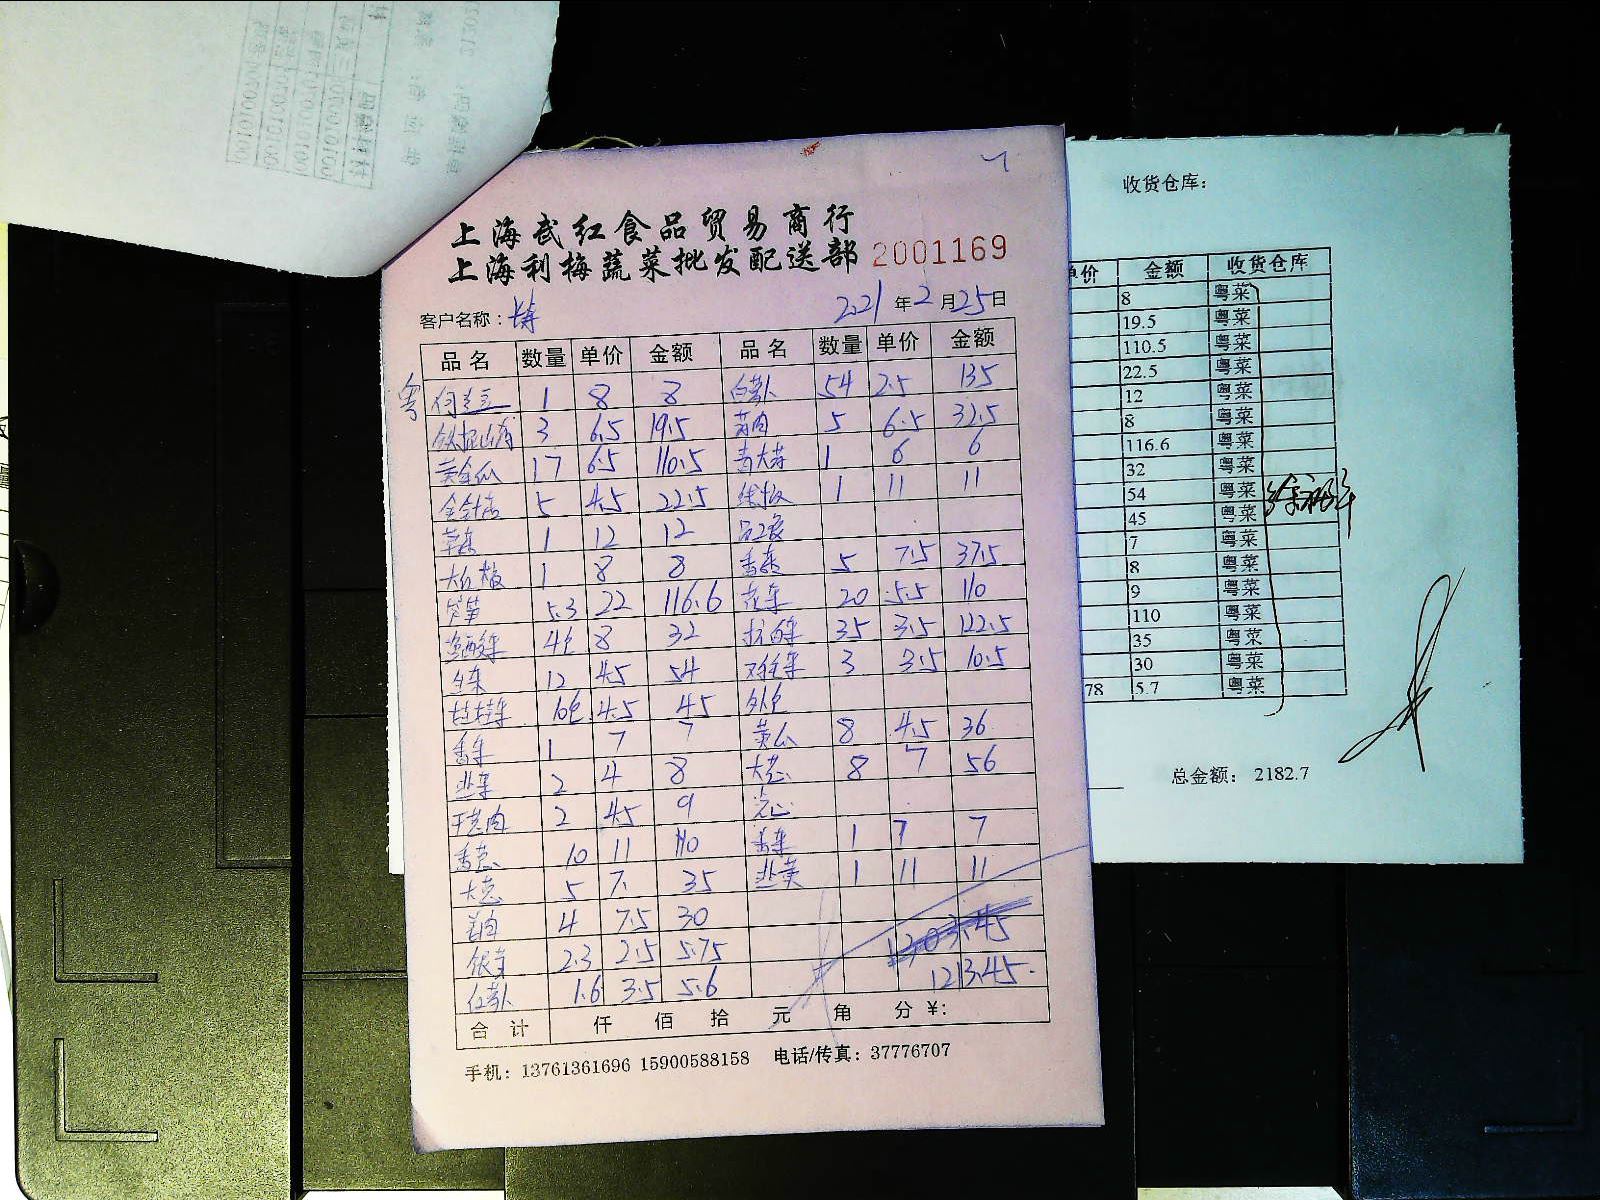 上海武红食品贸易商行
上海利梅蔬菜批发配送部 2001169
客户名称： 2021年2月25日
品名 数量 单价 金额 品名 数量 单价 金额
粤 荷兰豆 1 8 8 白萝卜 54 2.5 135
铁棍山药 3 6.5 19.5 5 6.5 32.5
黄金瓜 17 6.5 110.5 青大芥 1 6 6
金针菇 5 4.5 22.5 线椒 1 11 11
1 12 12
大红椒 1 8 8 香菜 5 7.5 37.5
芦笋 5.3 22 116.6 花菜 20 5.5 110
4包 8 32 35 3.5 122.5
12 4.5 54 3 3.5 10.5
娃娃菜 10包 4.5 45
香芹 1 7 7 黄瓜 8 4.5 36
韭菜 2 4 8 大葱 8 7 56
干葱肉 2 4.5 9
香葱 10 11 110 香菜 1 7 7
大葱 5 7. 35 韭黄 1 11 11
4 7.5 30
银芽 2.3 2.5 5.75 1303.45
红萝卜 1.6 3.5 5.6 1213.45
合计 仟 佰 拾 元 角 分 ¥:
手机：13761361696 15900588158 电话/传真：37776707
收货仓库：
单价 金额 收货仓库
8 粤菜
19.5 粤菜
110.5 粤菜
22.5 粤菜
12 粤菜
8 粤菜
116.6 粤菜
32 粤菜
54 粤菜
45 粤菜
7 粤菜
8 粤菜
9 粤菜
110 粤菜
35 粤菜
30 粤菜
78 5.7 粤菜
总金额： 2182.7